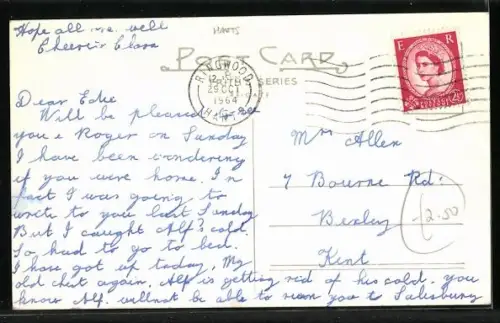 Hope all are well
Cheerio Clara
HANTS
POST CARD
SERIES
RINGWOOD
29 OCT
1964
HANTS
E R
2½
Dear Edie
Will be pleased to see
you & Roger on Sunday
I have been wondering
if you were home. In
fact I was going to
write to you last Sunday
But I caught Alf's cold.
So had to go to bed.
I have got up today. My
old chest again. Alf is getting rid of his cold. you
know Alf. will not be able to run you to Salisbury
Mrs Allen
7 Bourne Rd:
Bexley
Kent
2.50